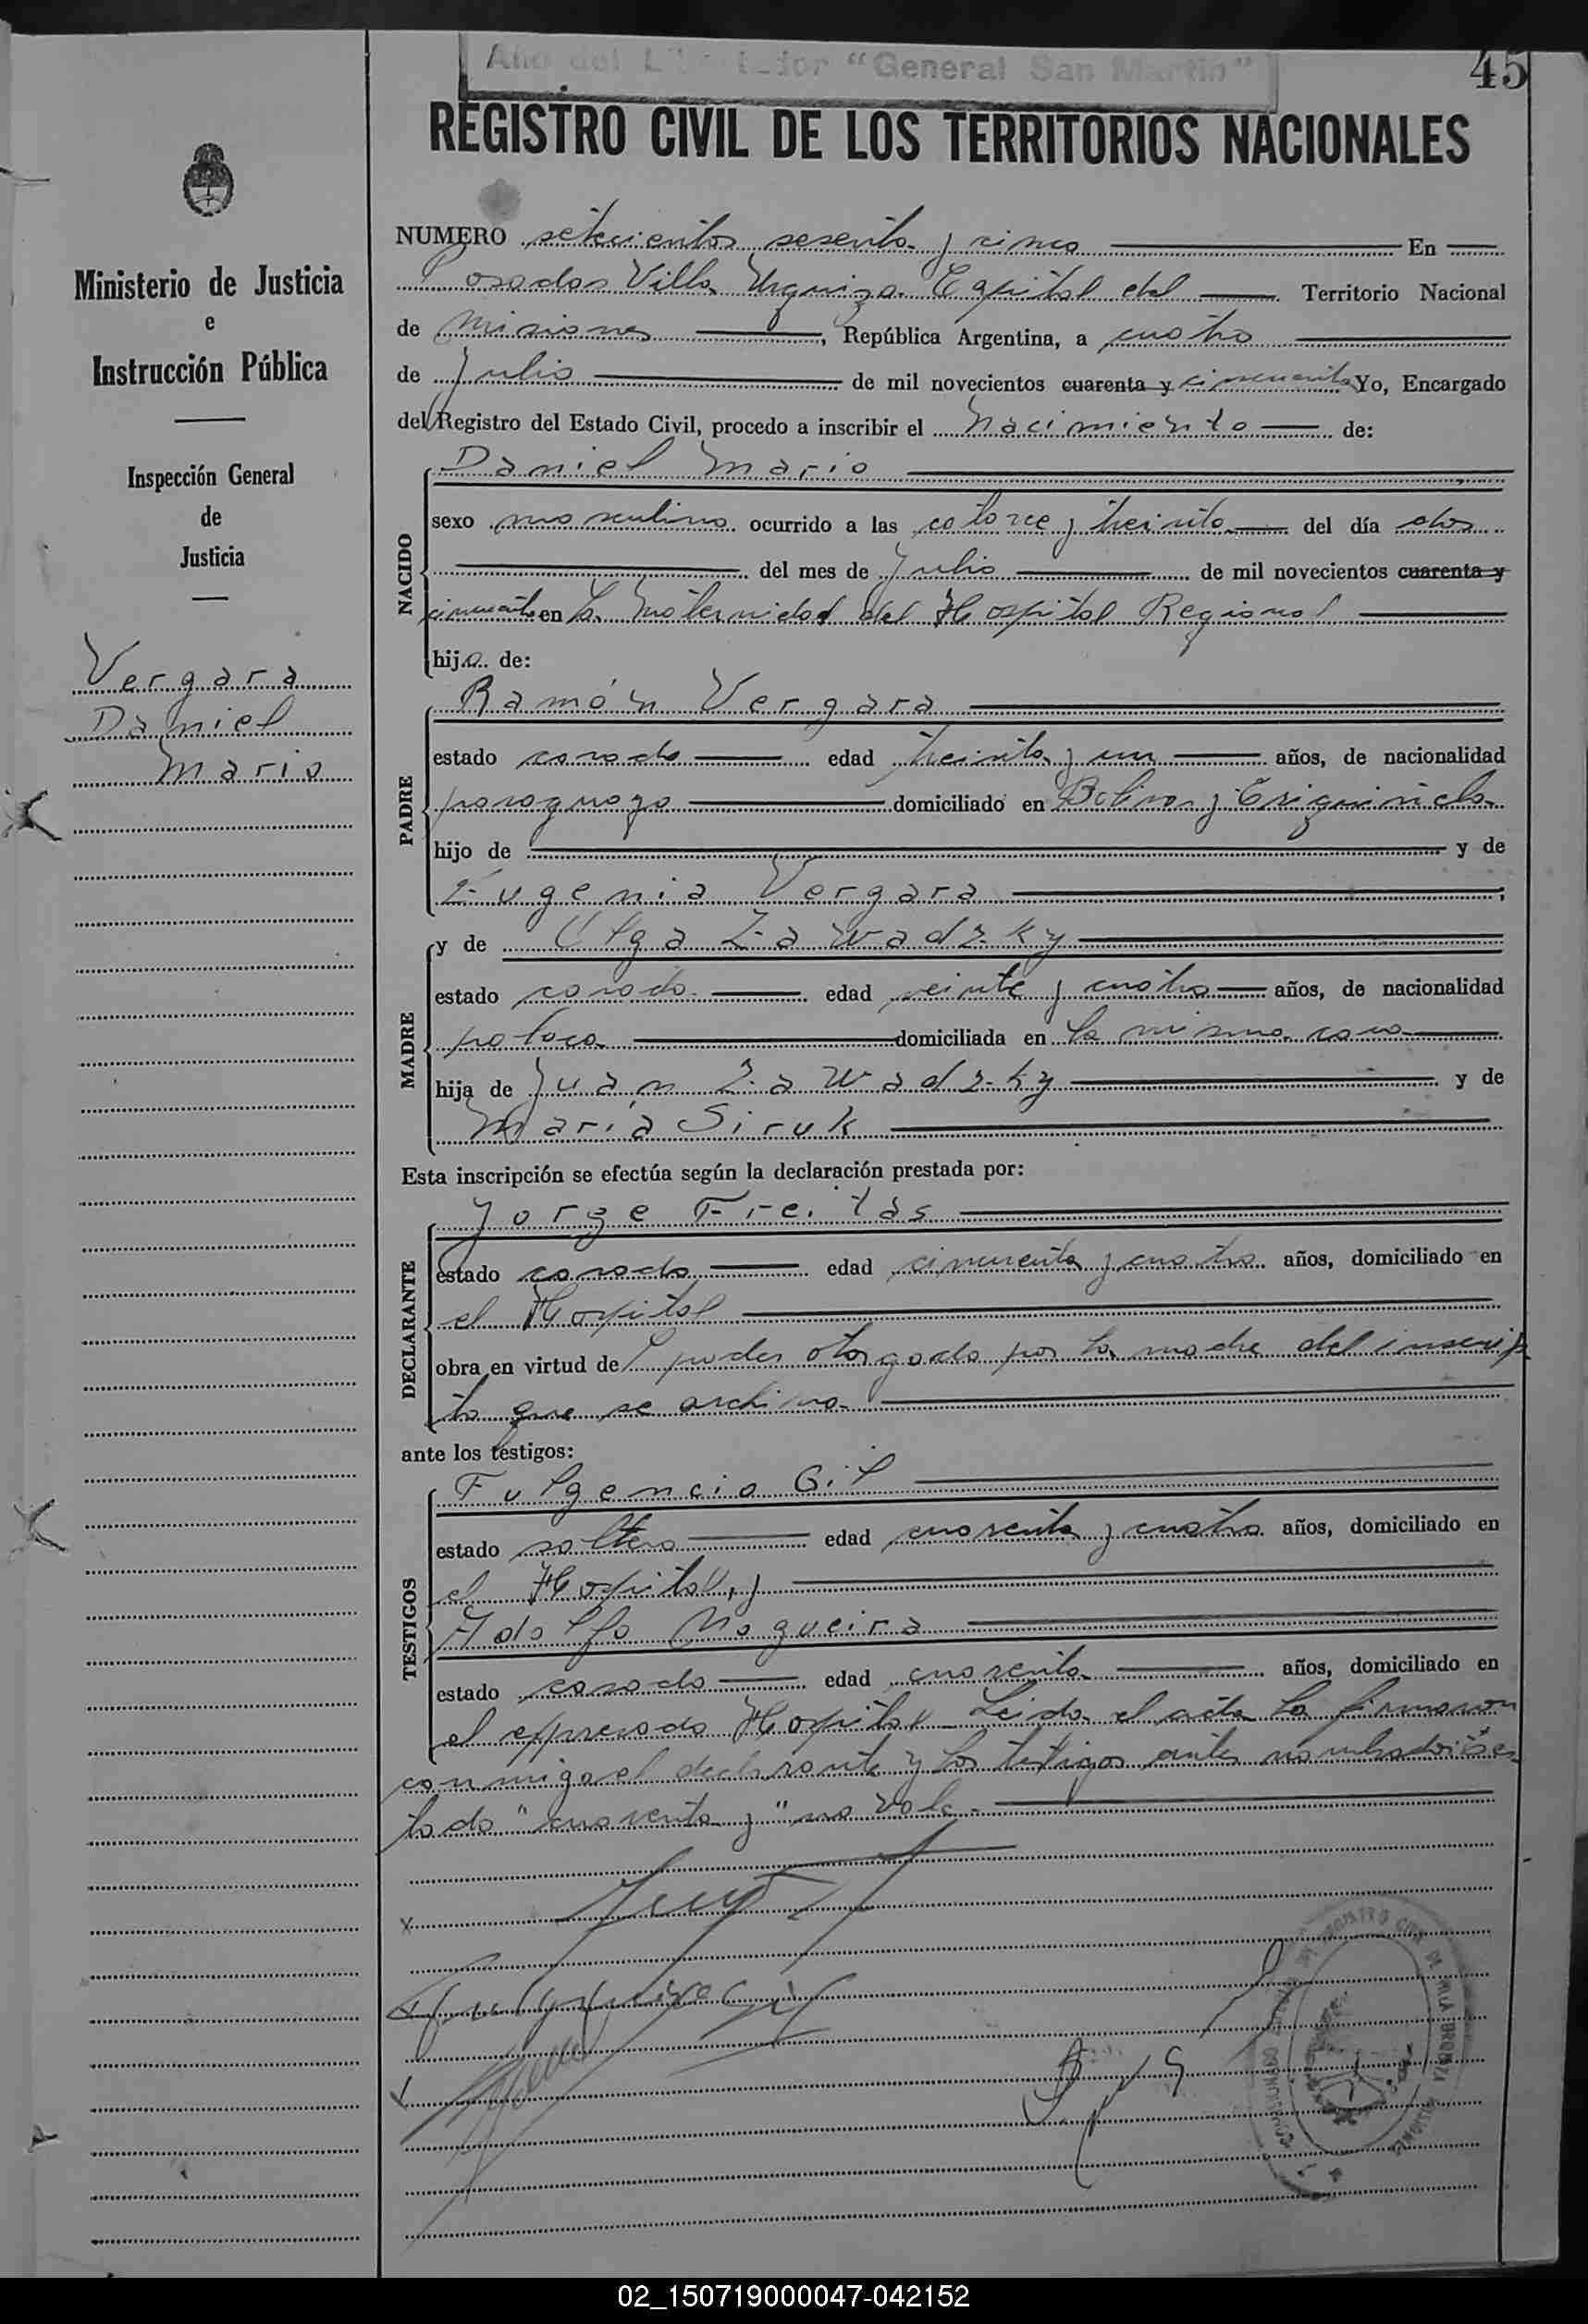 Año del Libertador "General San Martin"
45
REGISTRO CIVIL DE LOS TERRITORIOS NACIONALES
Ministerio de Justicia
e
Instrucción Pública
Inspección General
de
Justicia
Vergara
Daniel
Mario
NUMERO setecientos sesenta y cinco En
Posadas Villa Urquiza Capital del Territorio Nacional
de Misiones, República Argentina, a cuatro
de Julio de mil novecientos cuarenta y cincuenta Yo, Encargado
del Registro del Estado Civil, procedo a inscribir el Nacimiento de:
NACIDO
Daniel Mario
sexo masculino ocurrido a las catorce y treinta del día dos
del mes de Julio de mil novecientos cuarenta y
cincuenta en la Maternidad del Hospital Regional
hijo de:
PADRE
Ramón Vergara
estado casado edad treinta y un años, de nacionalidad
paraguaya domiciliado en Bolivar y
hijo de y de
Eugenia Vergara;
MADRE
y de Olga Zawadzky
estado casada edad veinte y cuatro años, de nacionalidad
polaca domiciliada en la misma casa
hija de Juan Zawadzky y de
María Siruk
Esta inscripción se efectúa según la declaración prestada por:
DECLARANTE
Jorge Freitas
estado casado edad cincuenta y cuatro años, domiciliado en
el Hospital
obra en virtud de poder otorgado por la madre del inscrip
to que se archiva
ante los testigos:
TESTIGOS
Fulgencio Gil
estado soltero edad cuarenta y cuatro años, domiciliado en
el Hospital, y
Adolfo Nogueira
estado casado edad cuarenta años, domiciliado en
el expresado Hospital Leida el acta la firmaron
conmigo el declarante y los testigos antes nombrados
tado "cuarenta y" no vale.
02_150719000047-042152